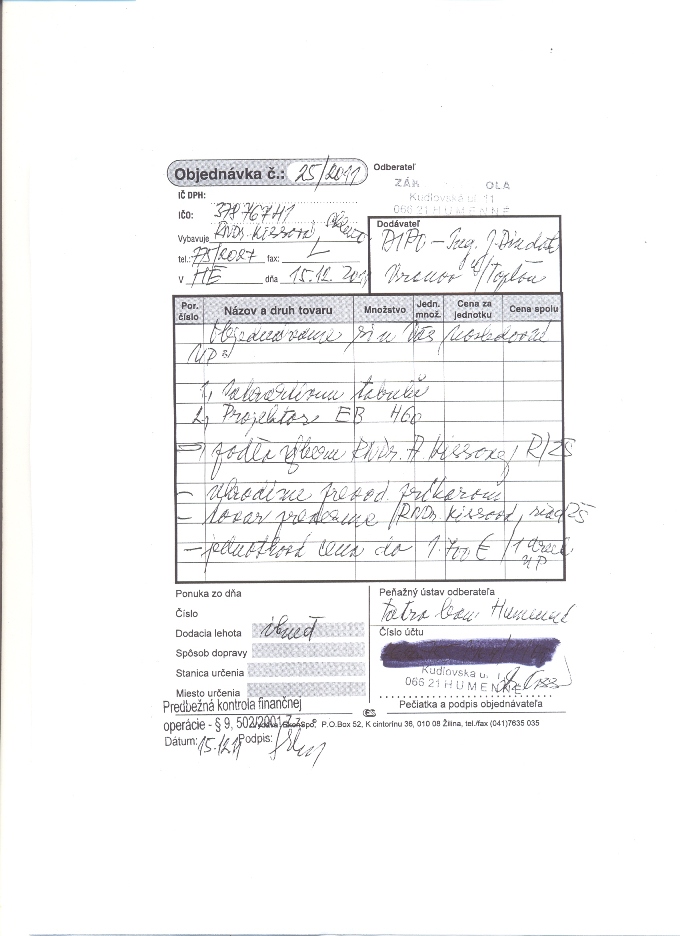 Objednávka č.: 25/2011
Odberateľ
ZÁK OLA
Kudlovská ul. 11
066 21 HUMENNÉ
IČ DPH:
IČO: 37876741
Vybavuje RNDr. Kissová
tel.: 78/2027 fax:
V HE dňa 15.12. 2011
Dodávateľ
DIPO - Ing. J. Dindák
Vranov n/Topľou
Por. číslo Názov a druh tovaru Množstvo Jedn. množ. Cena za jednotku Cena spolu
Objednávame si u Vás nasledovné
UP:
1, Interaktívnu tabuľu
2, Projektor EB 460
podľa výberu RNDr. A. Kissovej, R/ZŠ
- uhradíme prevod. príkazom
- tovar prevezme RNDr. Kissová, riad. ZŠ
- jednotková cena do 1.700 € /1 UP
Ponuka zo dňa
Číslo
Dodacia lehota ihneď
Spôsob dopravy
Stanica určenia
Miesto určenia
Peňažný ústav odberateľa
Tatra banka Humenné
Číslo účtu
Kudlovská ul. 1
066 21 HUMENNÉ
Pečiatka a podpis objednávateľa
Predbežná kontrola finančnej
operácie - § 9, 502/2001 Z.z.
P.O.Box 52, K cintorínu 36, 010 08 Žilina, tel./fax (041)7635 035
Dátum: 15.12.11 Podpis: